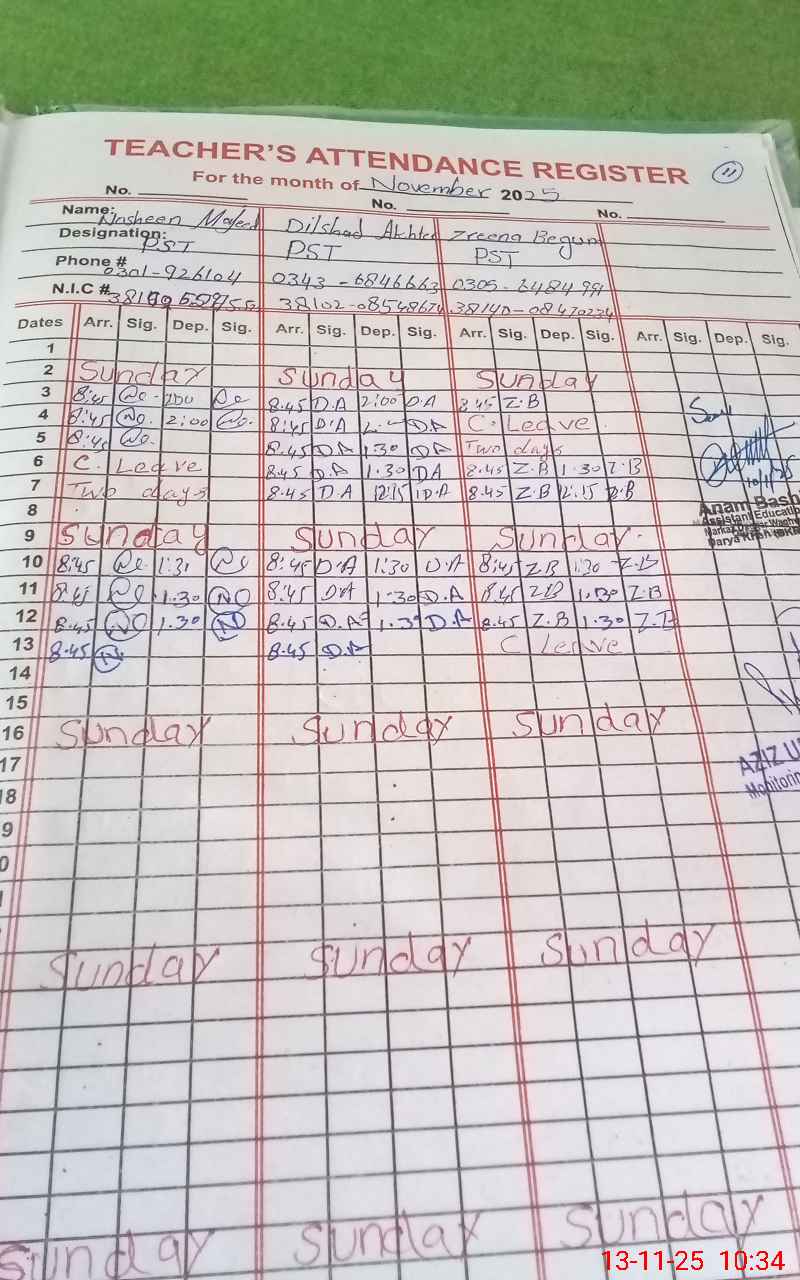 TEACHER'S ATTENDANCE REGISTER
11
For the month of November 2025
No. No. No.
Name: Nosheen Majeed Dilshad Akhter Zreena Begum
Designation: PST PST PST
Phone # 0301-926104 0343-6846663 0305-6484991
N.I.C # 38102-08548674
Dates Arr. Sig. Dep. Sig. Arr. Sig. Dep. Sig. Arr. Sig. Dep. Sig. Arr. Sig. Dep. Sig.
1
2 Sunday Sunday Sunday
3 8:45 2:00 8.45 D.A 2:00 D.A 8:45 Z.B
4 8:45 No. 2:00 No. 8:45 D.A D.A C. Leave
5 8:45 8.45 D.A 1.30 D.A Two days
6 C. Leave 8.45 D.A 1.30 DA 8.45 Z.B 1.30 Z.B
7 Two days 8.45 D.A 12:15 D.A 8.45 Z.B 12.15 Z.B
8
9 Sunday Sunday Sunday.
10 8:45 1:30 8:45 D.A 1:30 D.A 8:45 Z.B 1:30 Z.B
11 8:45 1.30 NO 8:45 D.A 1.30 D.A 8.45 Z.B 1.30 Z.B
12 8.45 NO 1.30 N 8.45 D.A 1.30 D.A 8.45 Z.B 1.30 Z.B
13 8.45 N 8.45 D.A C Leave
14
15
16 Sunday Sunday Sunday
17
8
9
0
Sunday Sunday Sunday
Sunday Sunday Sunday
10/11/25
Anam Bash
Assistant Educatio
Darya Khan
AZIZ U
Monitorin
13-11-25 10:34